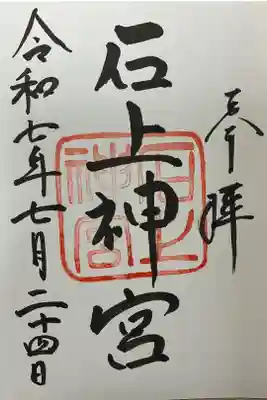 奉拝
石上神宮
令和七年七月二十四日
石上
神宮